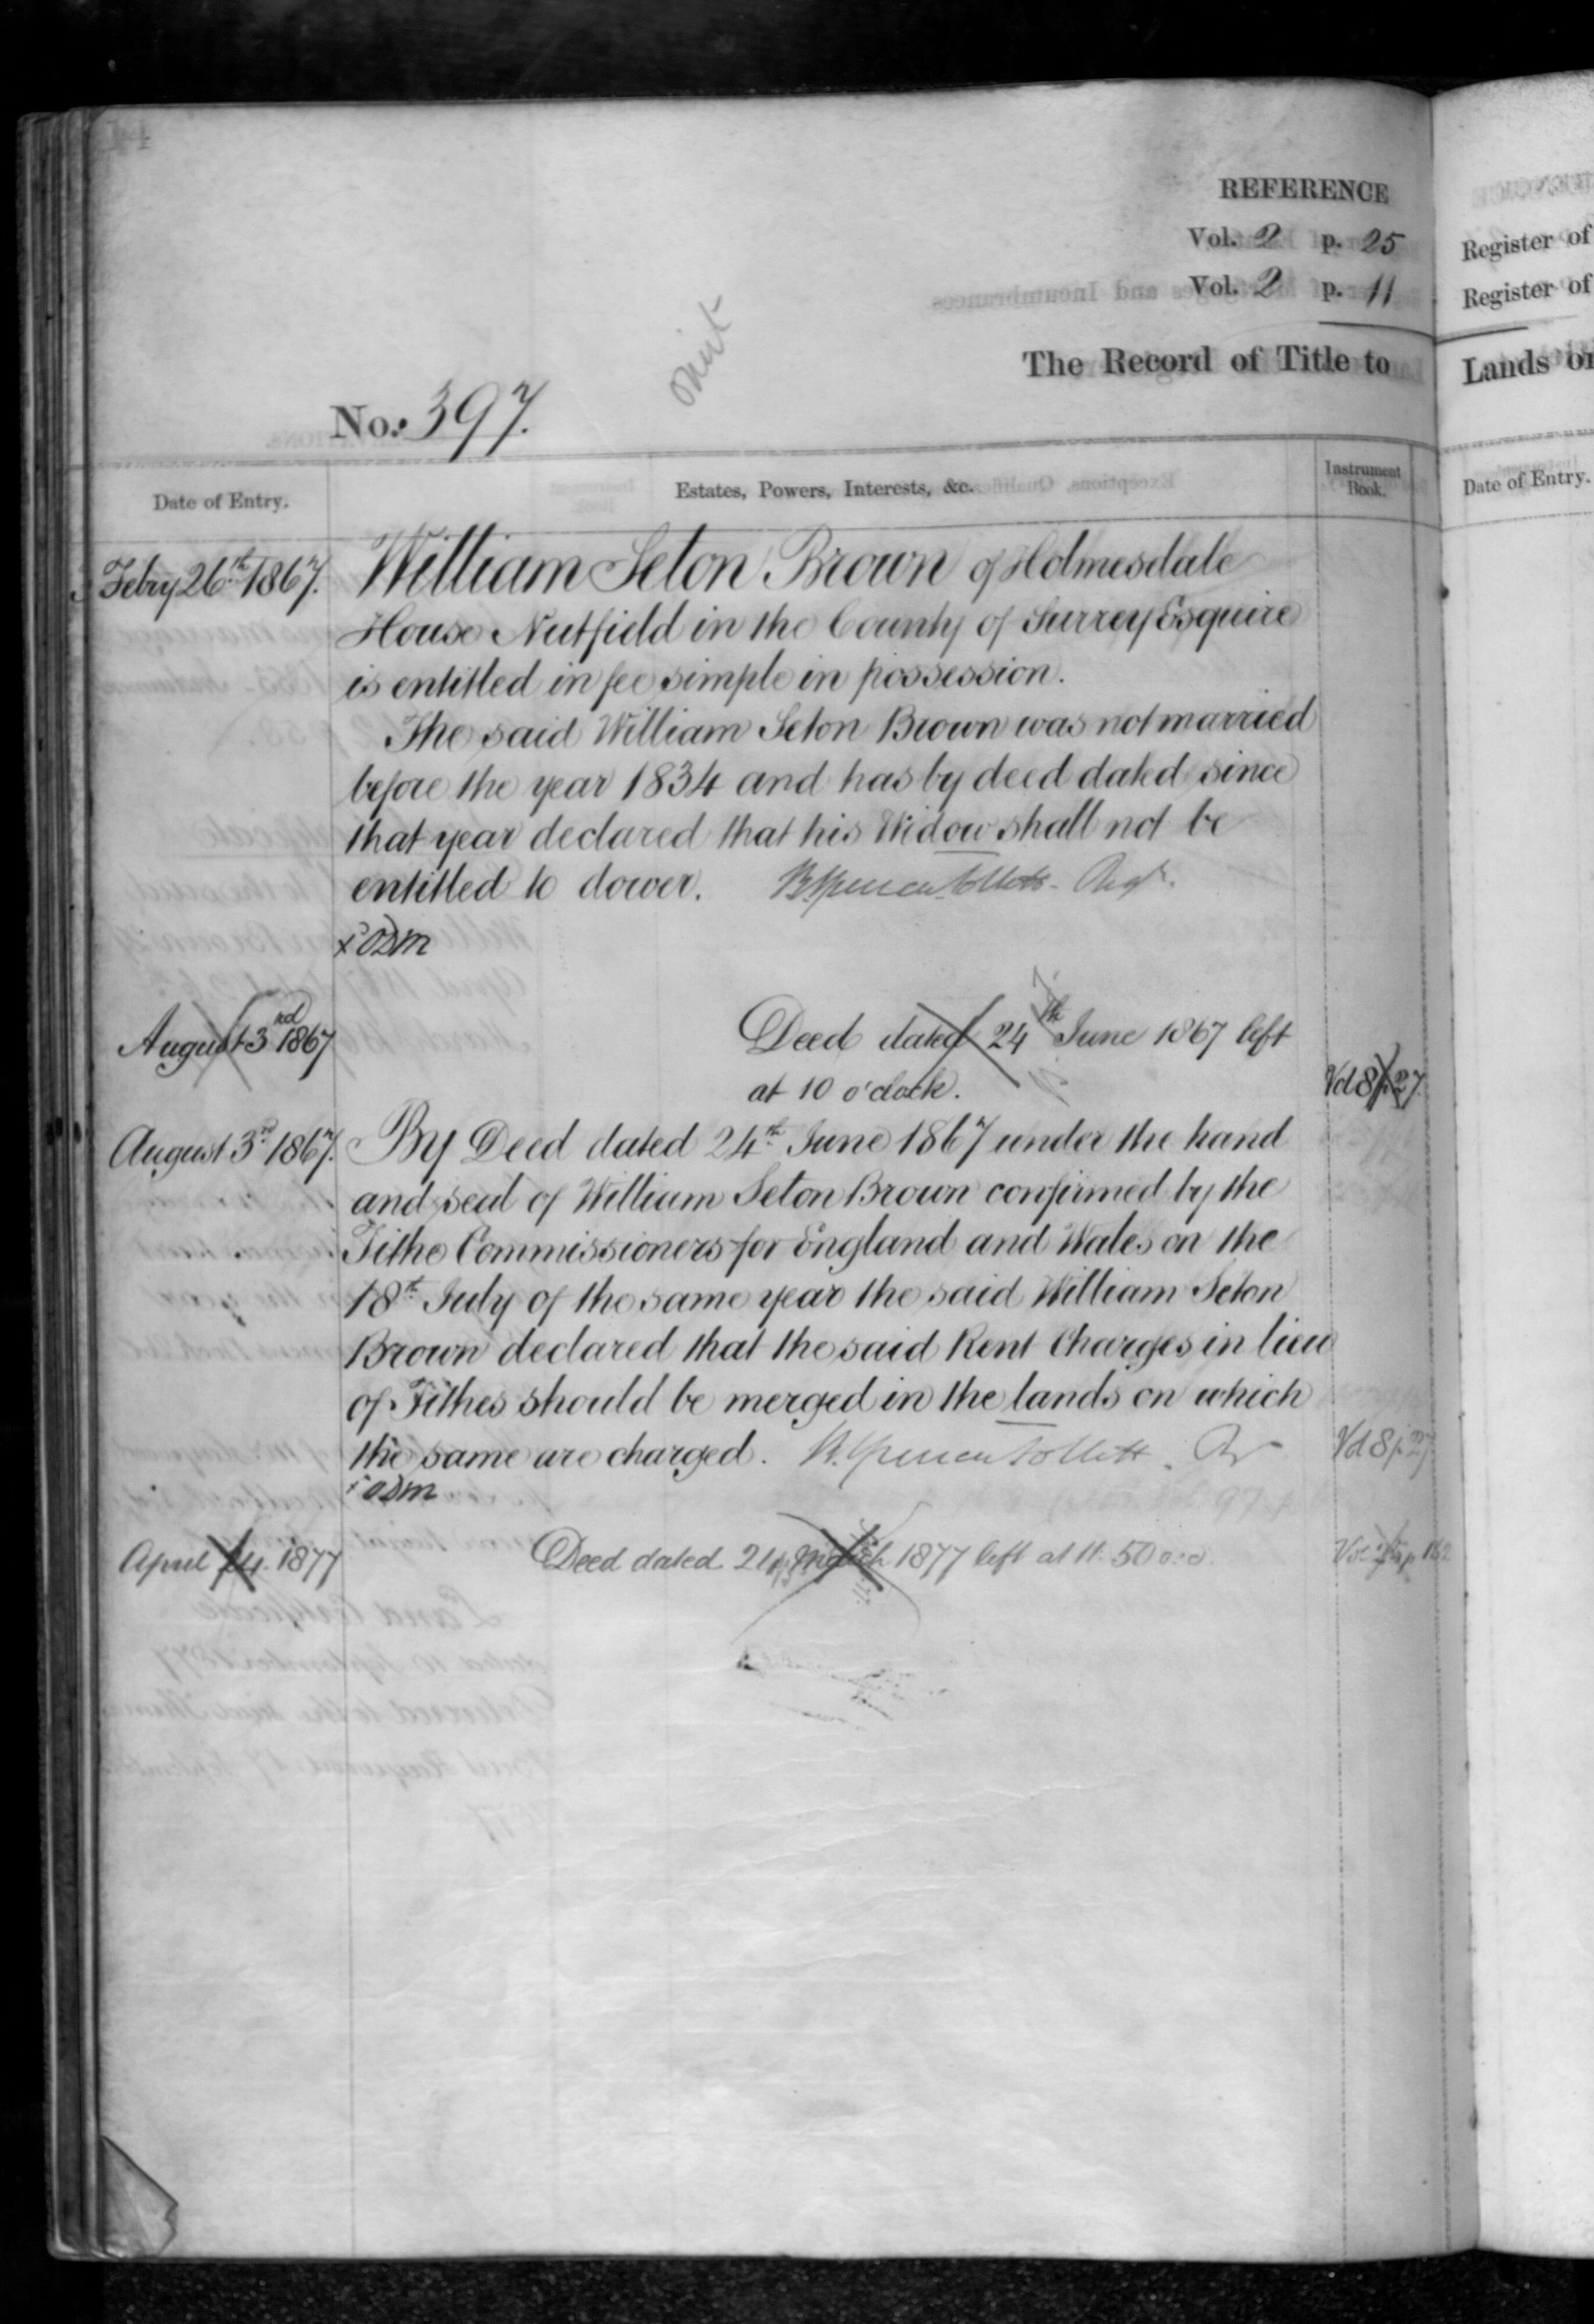 REFERENCE
Vol. 2 p. 25
Vol. 2 p. 11
The Record of Title to
omit
No. 397.
Date of Entry.
Estates, Powers, Interests, &c.
Instrument Book.
Febry 26th 1867. William Seton Brown of Holmesdale
House Nutfield in the County of Surrey Esquire
is entitled in fee simple in possession.
The said William Seton Brown was not married
before the year 1834 and has by deed dated since
that year declared that his Widow shall not be
entitled to dower.
August 3rd 1867 Deed dated 24th June 1867 left
at 10 o'clock. Vol 8 p. 27
August 3rd 1867. By Deed dated 24th June 1867 under the hand
and seal of William Seton Brown confirmed by the
Tithe Commissioners for England and Wales on the
18th July of the same year the said William Seton
Brown declared that the said Rent Charges in lieu
of Tithes should be merged in the lands on which
the same are charged. Vol 8 p. 27
April 24. 1877 Deed dated 24 March 1877 left at 11.50
Register of
Register of
Lands or
Date of Entry.